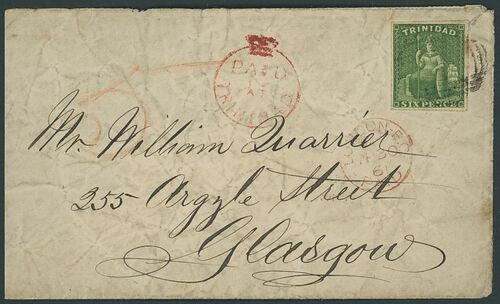 PAID
AT
TRINIDAD
TRINIDAD
SIX PENCE
Mr. William Quarrier
255 Argyle Street
Glasgow